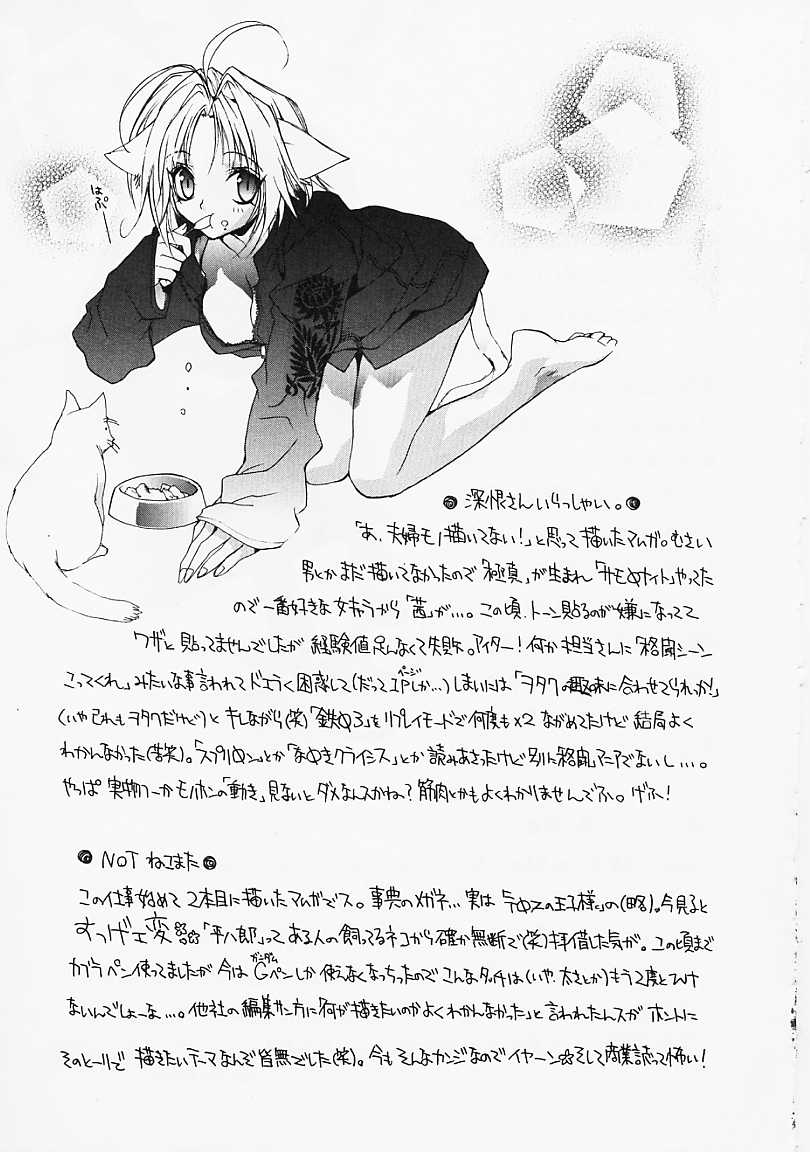 はぷ
深恨さんいらっしゃい。
「あ、夫婦モノ描いてない!」と思って描いたマムガ。むさい
男とかまだ描いてなかったので「極真」が生まれ「サモ㋧ナイト」やってた
ので一番好きな女キャラから「茜」が…。この頃、トーン貼るのが「嫌」になってて
ワザと貼ってませんでしたが経験値足んなくて失敗。アイター!何か担当さんに「格闘シーン
こってくれ」みたいな事言われてドエラく困惑して(だって1Pページしか…)しまいには「ヲタクの趣味に合わせてられっか!」
(いやこれもヲタクだけど)とキレながら(笑)「鉄㋧3」をリプレイモードで何度も×2ながめてたけど結局よく
わかんなかった(苦笑)。「スプリ㋧ン」とか「な㋧きクライシス」とか読みあさったけど別に格闘マニアでないし…。
やっぱ実物つーかモノホンの「動き」見ないとダメなんスかね?筋肉とかもよくわかりませんでふ。げふ!
NOTねこまた
この仕事始めて2本目に描いたマムガでス。事典のメガネ…実は「テ㋧スの王子様」の(略)。今見ると
すっげェ変
「平八郎」ってある人の飼ってるネコから確か無断で(笑)拝借した気が。この頃まで
カブラペン使ってましたが今はGガンダムペンしか使えなくなっちったのでこんなタッチは(いや、太さとか)もう2度とひけ
ないんでしょーな…。他社の編集サン方に「何が描きたいのかよくわかんなかった」と言われたんスがホントに
そのとーりで描きたいテーマなんぞ皆無でした(笑)。今もそんなカンジなのでイヤーン☆そして商業誌って怖い!